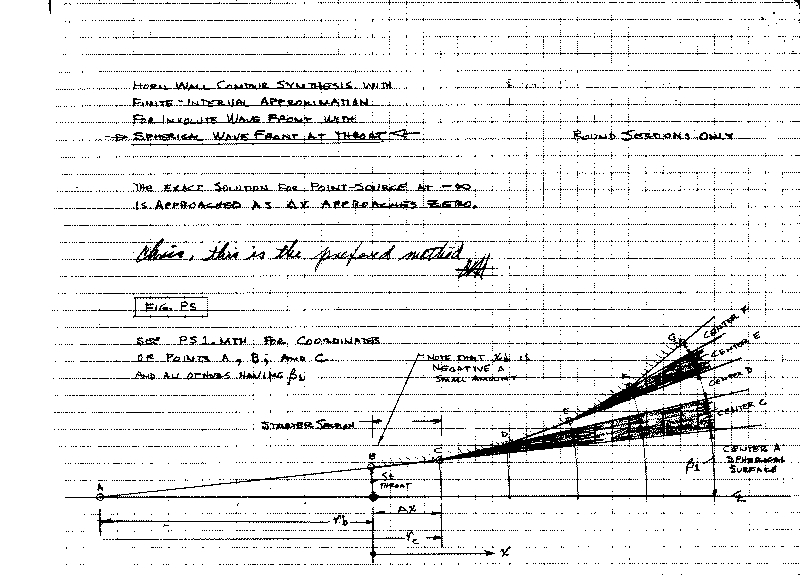 HORN WALL CONTOUR SYNTHESIS WITH
FINITE-INTERVAL APPROXIMATION
FOR INVOLUTE WAVE FRONT WITH
SPHERICAL WAVE FRONT AT THROAT
ROUND SECTIONS ONLY
THE EXACT SOLUTION FOR POINT-SOURCE AT -∞
IS APPROACHED AS ΔX APPROACHES ZERO.
Chris, this is the prefered method
FIG. PS
SEE PS1.MTH FOR COORDINATES
OF POINTS A, B, AND C
AND ALL OTHERS HAVING βi
NOTE THAT Xb IS
NEGATIVE A
SMALL AMOUNT
STARTER SECTION
CENTER F
CENTER E
CENTER D
CENTER C
CENTER A
SPHERICAL
SURFACE
G
F
E
D
C
B
A
THROAT
βi
℄
ΔX
rb
rc
X